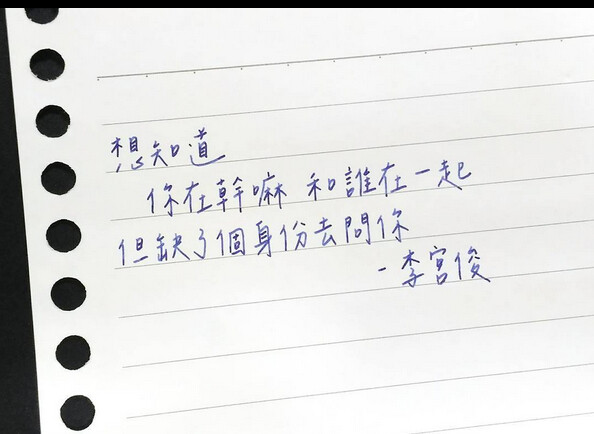 想知道
你在幹嘛 和誰在一起
但缺了個身份去問你
-李宮俊